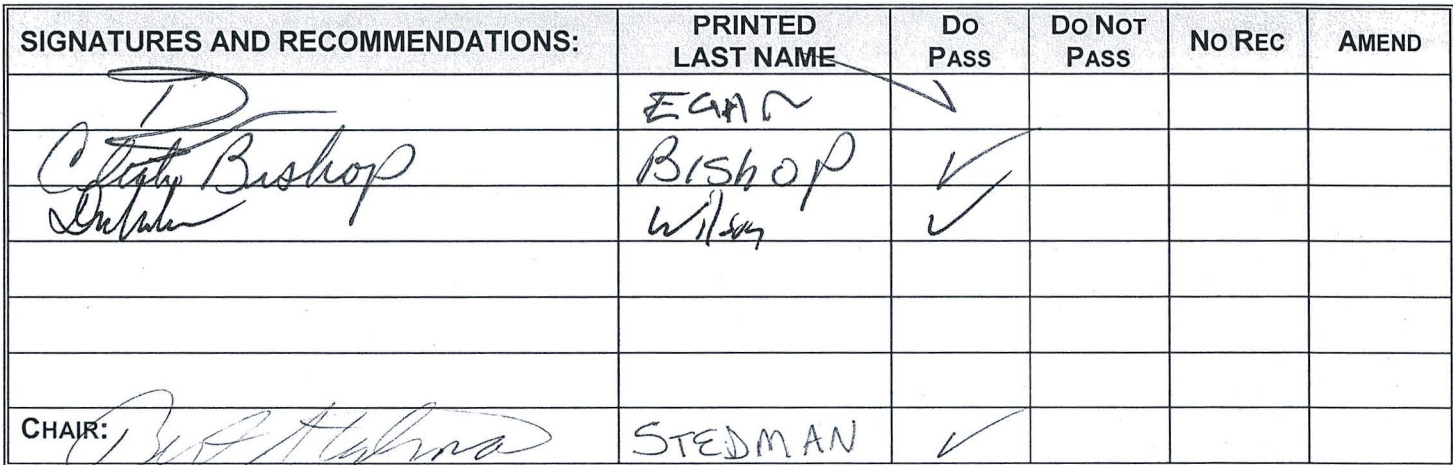 SIGNATURES AND RECOMMENDATIONS: PRINTED LAST NAME DO PASS DO NOT PASS NO REC AMEND
EGAN ✓
Bishop BISHOP ✓
Wilson ✓
CHAIR: STEDMAN ✓